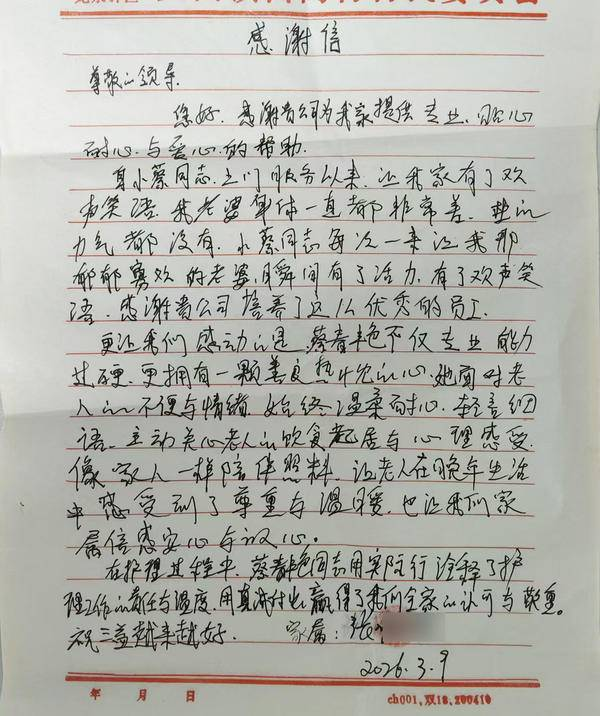 感谢信
尊敬的领导
您好.感谢贵公司为我家提供专业、贴心
耐心.与爱心.的帮助.
自小蔡同志.上门服务以来.让我家有了欢
声笑语.我老婆身体一直都非常差.坐的
力气都没有.小蔡同志每次一来让我那
郁郁寡欢的老婆瞬间有了活力.有了欢声笑
语.感谢贵公司培养了这么优秀的员工.
更让我们感动的是.蔡春艳不仅专业能力
过硬.更拥有一颗善良热忱的心.她面对老
人的不便与情绪.始终温柔耐心.轻言细
语.主动关心老人的饮食起居与心理感受.
像家人一样陪伴照料.让老人在晚年生活
中感受到了尊重与温暖.也让我们家
属倍感安心与放心。
在护理过程中.蔡春艳同志用实际行诠释了护
理工作的责任与温度.用真诚付出赢得了我们全家的认可与敬重。
祝三益越来越好. 家属:张
2026.3.9
年 月 日 ch001,双18,200410